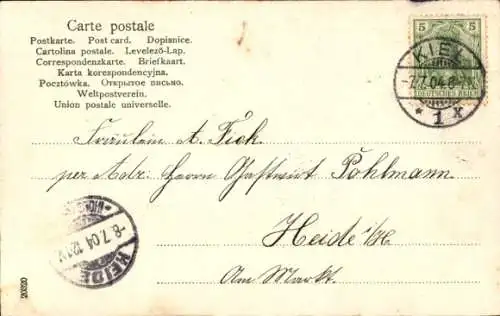 Carte postale
Postkarte. Post card. Dopisnice.
Cartolina postale. Levelező-Lap.
Correspondenzkarte. Briefkaart.
Karta korespondencyjna.
Pocztówka. Открытое письмо.
Weltpostverein.
Union postale universelle.
5 5
DEUTSCHES REICH
KIEL
-7.7.04.8-
* 1 X
Fräulein A. Fick
per Adr: Herrn Gastwirt Pohlmann.
Heide i/H
Am Markt.
-8.7.04.
HEIDE
20320